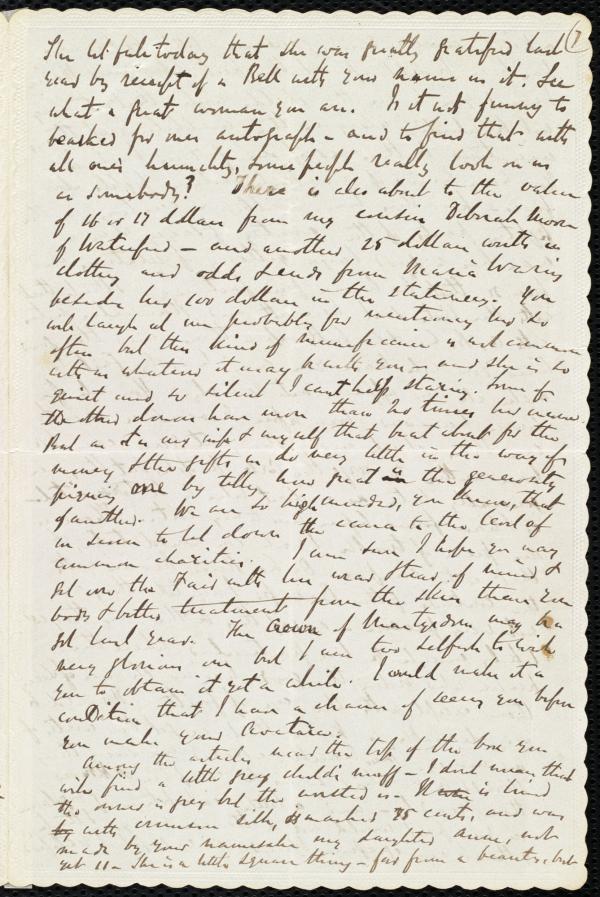 7
She tells me today that she was greatly gratified last
year by receipt of a Bell with your name on it. See
what a great woman you are. Is it not funny to
be asked for ones autograph - and to find that with
all ones humility, some people really look on us
as somebody? There is also about to the value
of 16 or 17 dollars from my cousin Deborah Moon
of Waterford - and another 25 dollars worth in
clothing and odds & ends from Maria Waring
beside her 100 dollars in the stationery. You
will laugh at me probably for mentioning her so
often but this kind of munificence is not common
with us whatever it may be with you - and she is so
quiet and so silent I cant help staring. Some of
the other donors have more than 20 times her income
But as it is my wife & myself that beat about for the
money & the gifts we do very little in the way of
one by telling how great is the generosity
of another. We are so highminded, you know, that
we scorn to let down the cause to the level of
common charities. I am sure I hope you may
get over the Fair with less wear & tear of mind &
body & better treatment from the skies than you
got last year. The crown of Martyrdom may be a
very glorious one but I am too selfish to wish
you to obtain it yet a while. I would make it a
condition that I have a chance of seeing you before
you make your
Among the articles near the top of the box you
will find a little grey child's muff - I dont mean that
the owner is grey but the worsted is - It is lined
with crimson silk, is marked 75 cents, and was
made by your namesake my daughter Anne, not
yet 11 - She is a little square thing - far from a beauty, but